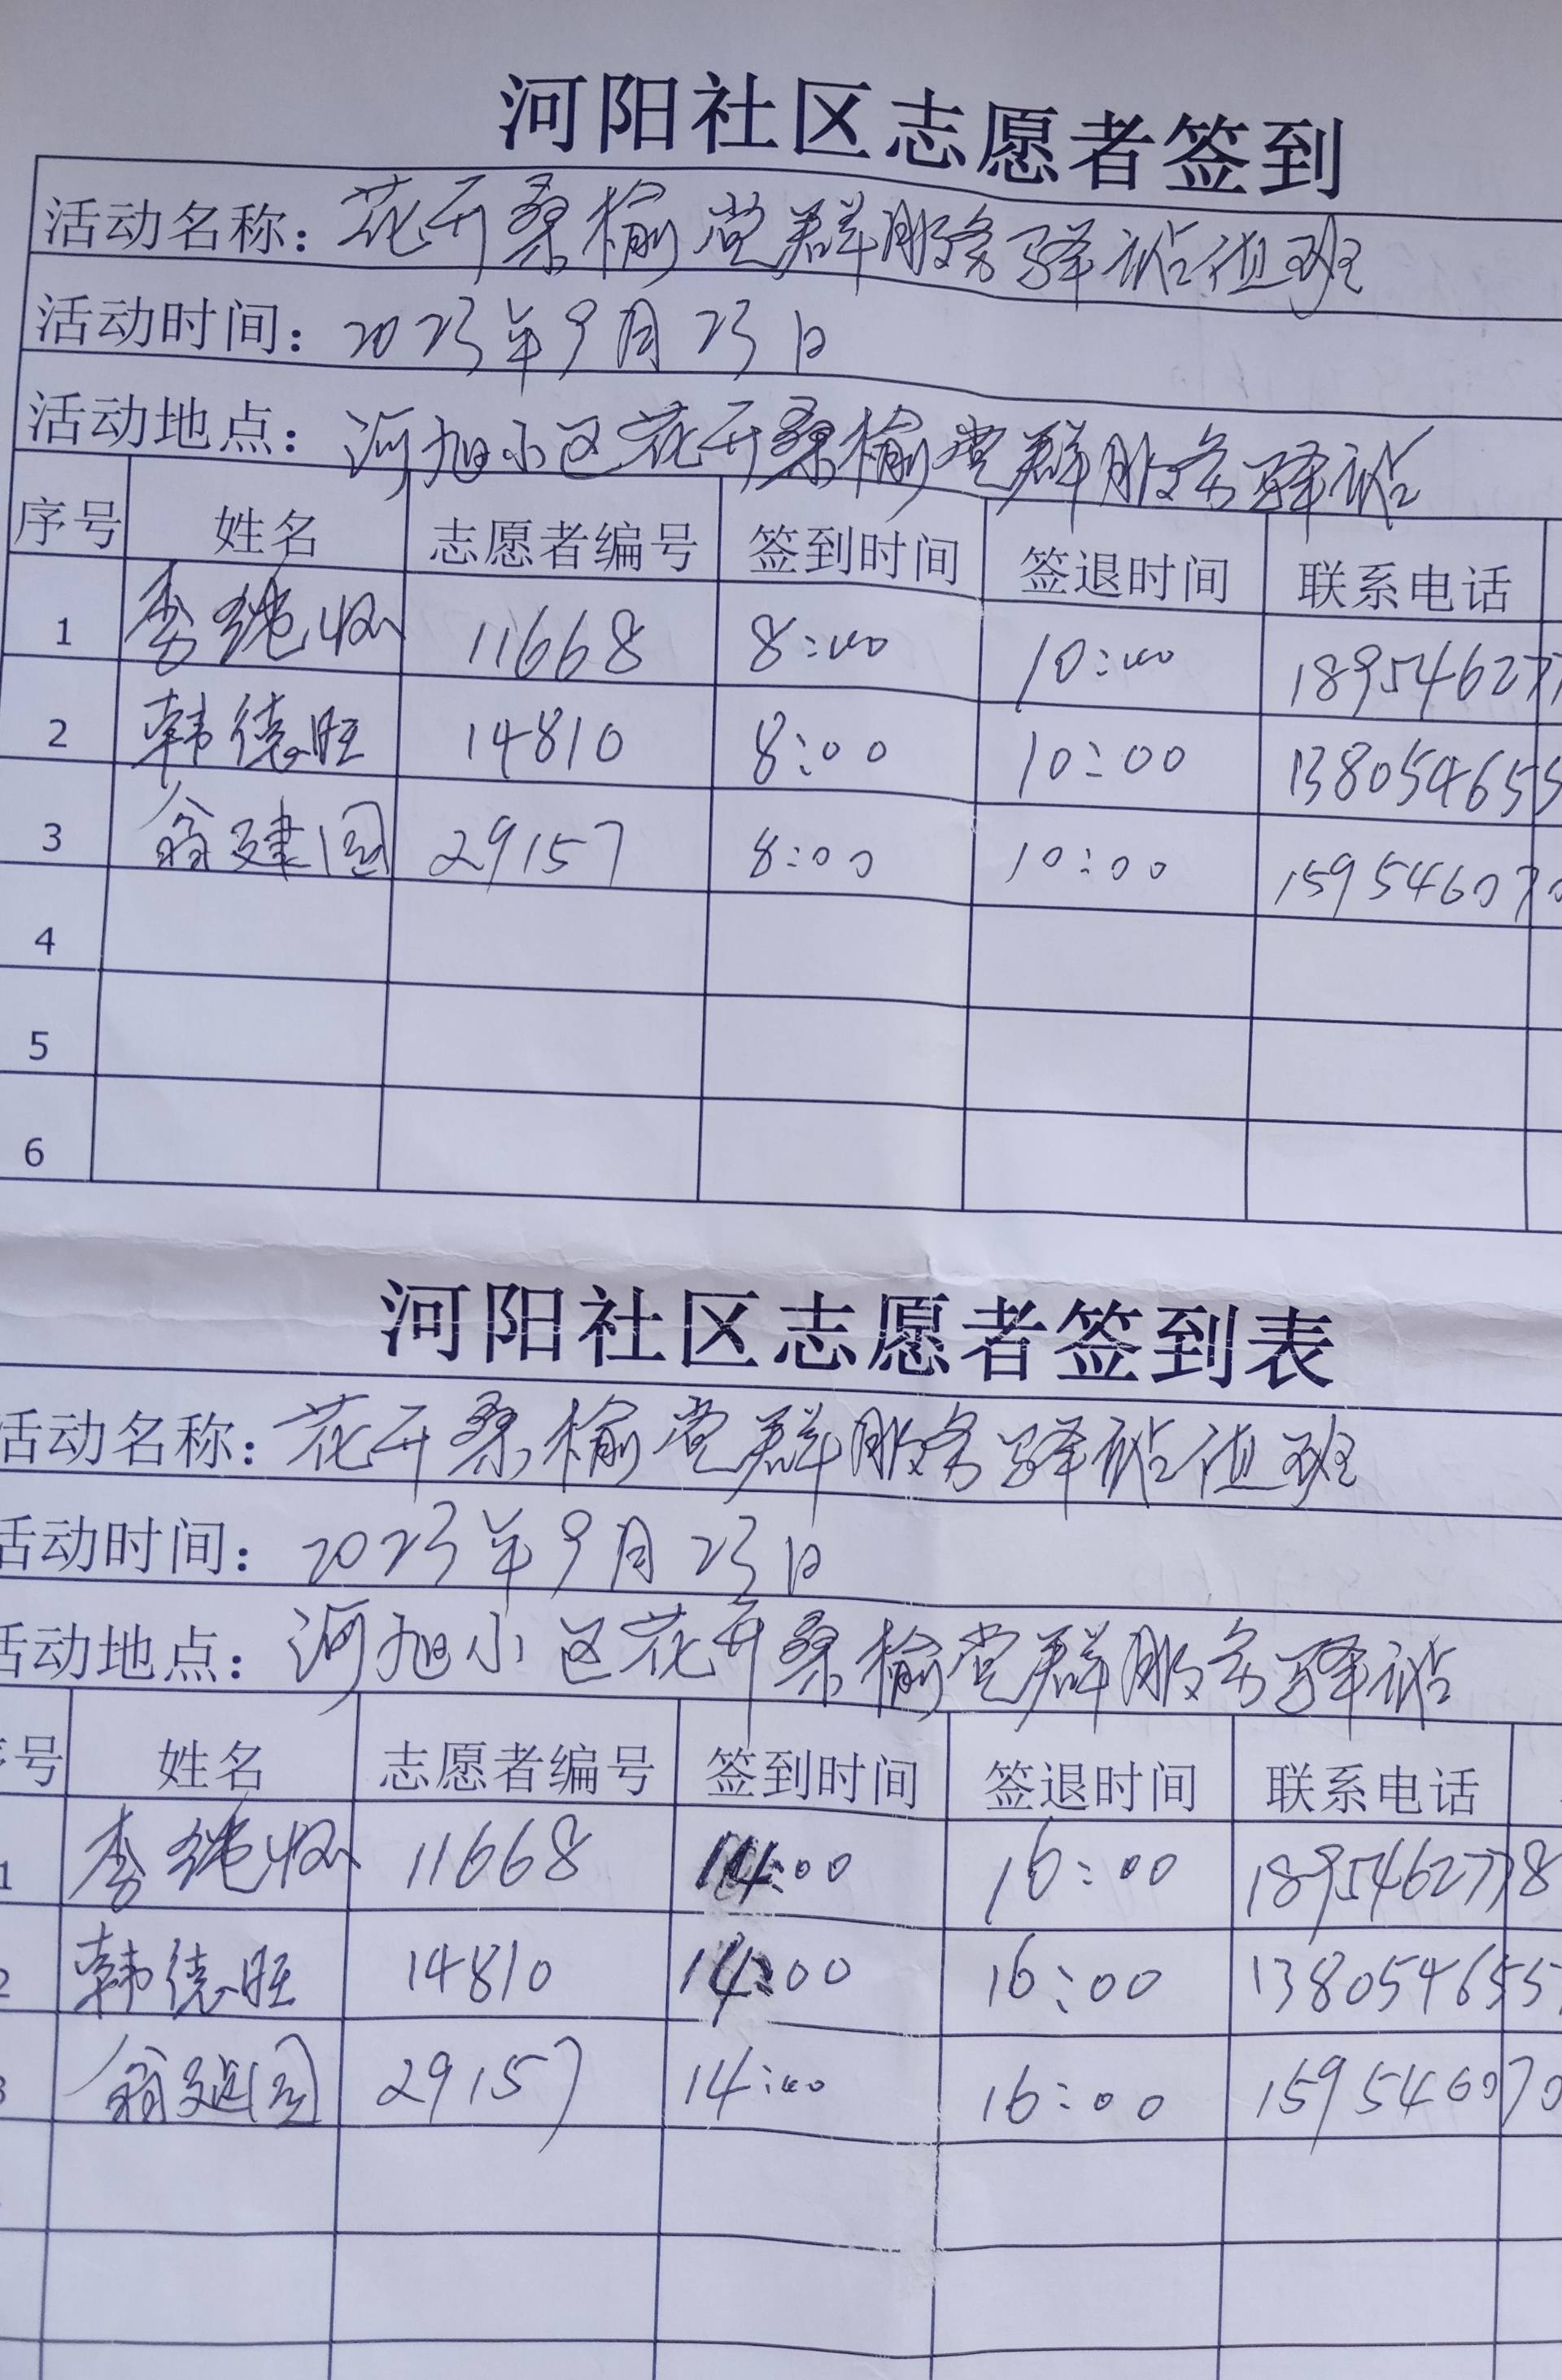 河阳社区志愿者签到
活动名称：花开桑榆党群服务驿站值班
活动时间：2023年9月23日
活动地点：河旭小区花开桑榆党群服务驿站
序号 姓名 志愿者编号 签到时间 签退时间 联系电话
1 李 11668 8:00 10:00 189546277
2 韩德旺 14810 8:00 10:00 138054655
3 翁建国 29157 8:00 10:00 159546070
4
5
6
河阳社区志愿者签到表
活动名称：花开桑榆党群服务驿站值班
活动时间：2023年9月23日
活动地点：河旭小区花开桑榆党群服务驿站
号 姓名 志愿者编号 签到时间 签退时间 联系电话
1 李 11668 14:00 16:00 18954627778
2 韩德旺 14810 14:00 16:00 138054655
3 翁建国 29157 14:00 16:00 159546070